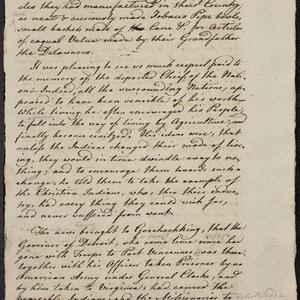 cles they had manufactured in their Country,
as neat & curiously made Tobacco Pipe bowls,
small baskets made of the Cane &c for Articles
of equal Value made by their Grandfather
the Delawares.
It was pleasing to see so much respect paid to
the memory of the departed Chief of the Nati-
on: Indeed all the surrounding Nations, ap-
peared to have been sensible of his worth.
While living he often encouraged his People,
to fall into the way of living by Agriculture, and
finally become civilized. His ideas were, that
unless the Indians changed their mode of liv-
ing, they would in time dwindle away to no-
thing; and to encourage them towards such a
change, he told them to take the example of
the Christian Indians, who, thro their indus-
try, had every thing they could wish for,
and never suffered from want.
The news brought to Goschachking, that the
Governor of Detroit, who some time since had
gone with Troops to Post Vencennes, was there,
together with his Officers taken Prisoner by an
American Army under General Clarke, and by
him taken to Virginia; had caused the
peaceable Indians and the Missionaries to